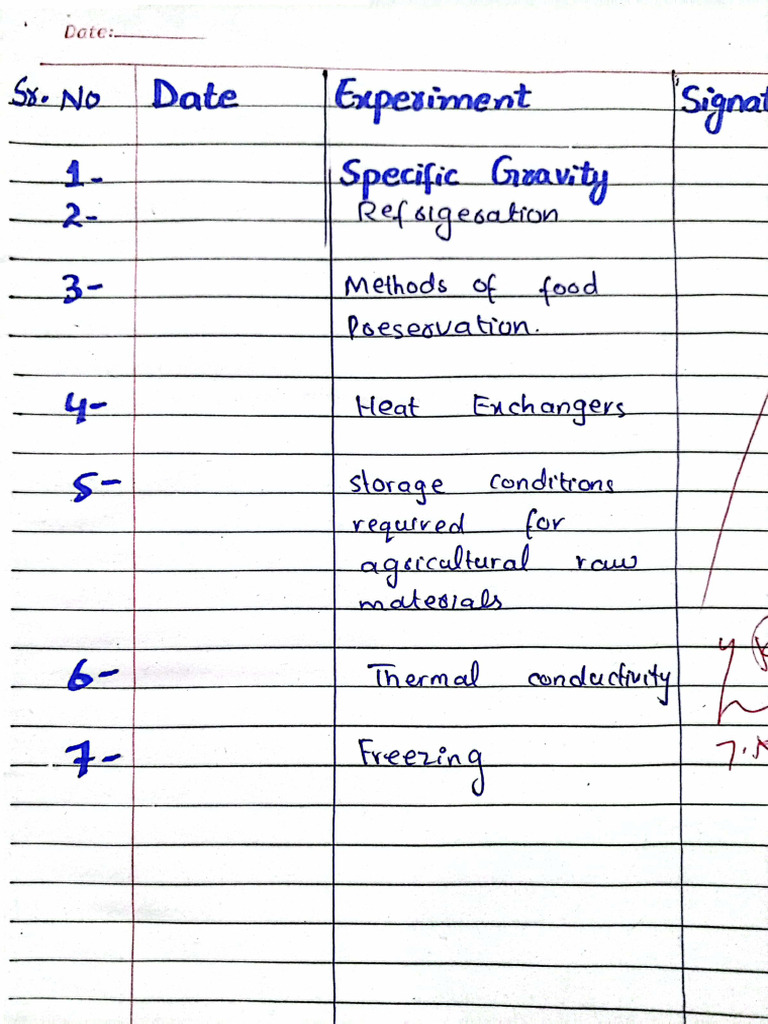 Date:
Sr. No Date Experiment Signat
1- Specific Gravity
2- Refrigeration
3- Methods of food
Preservation.
4- Heat Exchangers
5- Storage conditions
required for
agricultural raw
materials
6- Thermal conductivity
7- Freezing